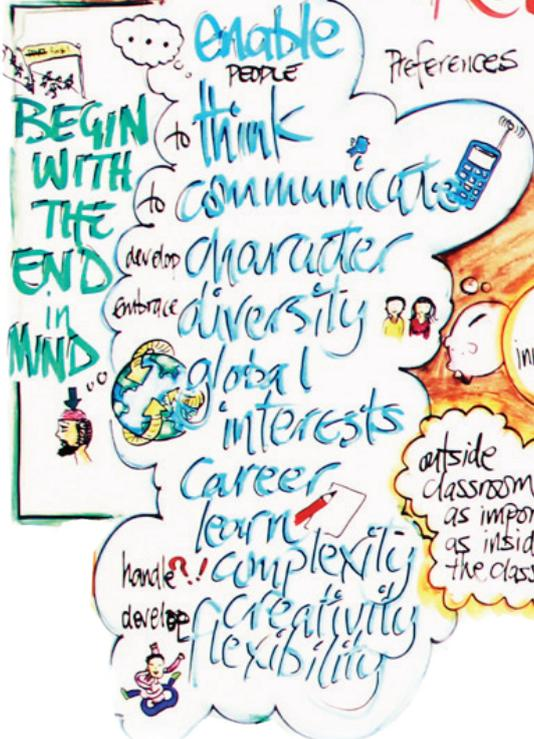 BEGIN
WITH
THE
END
in
MIND
enable
PEOPLE
to think
to communicate
develop character
embrace diversity
global
interests
career
learn
handle ?! complexity
develop creativity
flexibility
Preferences
outside
classroom
as impor
as insid
the class